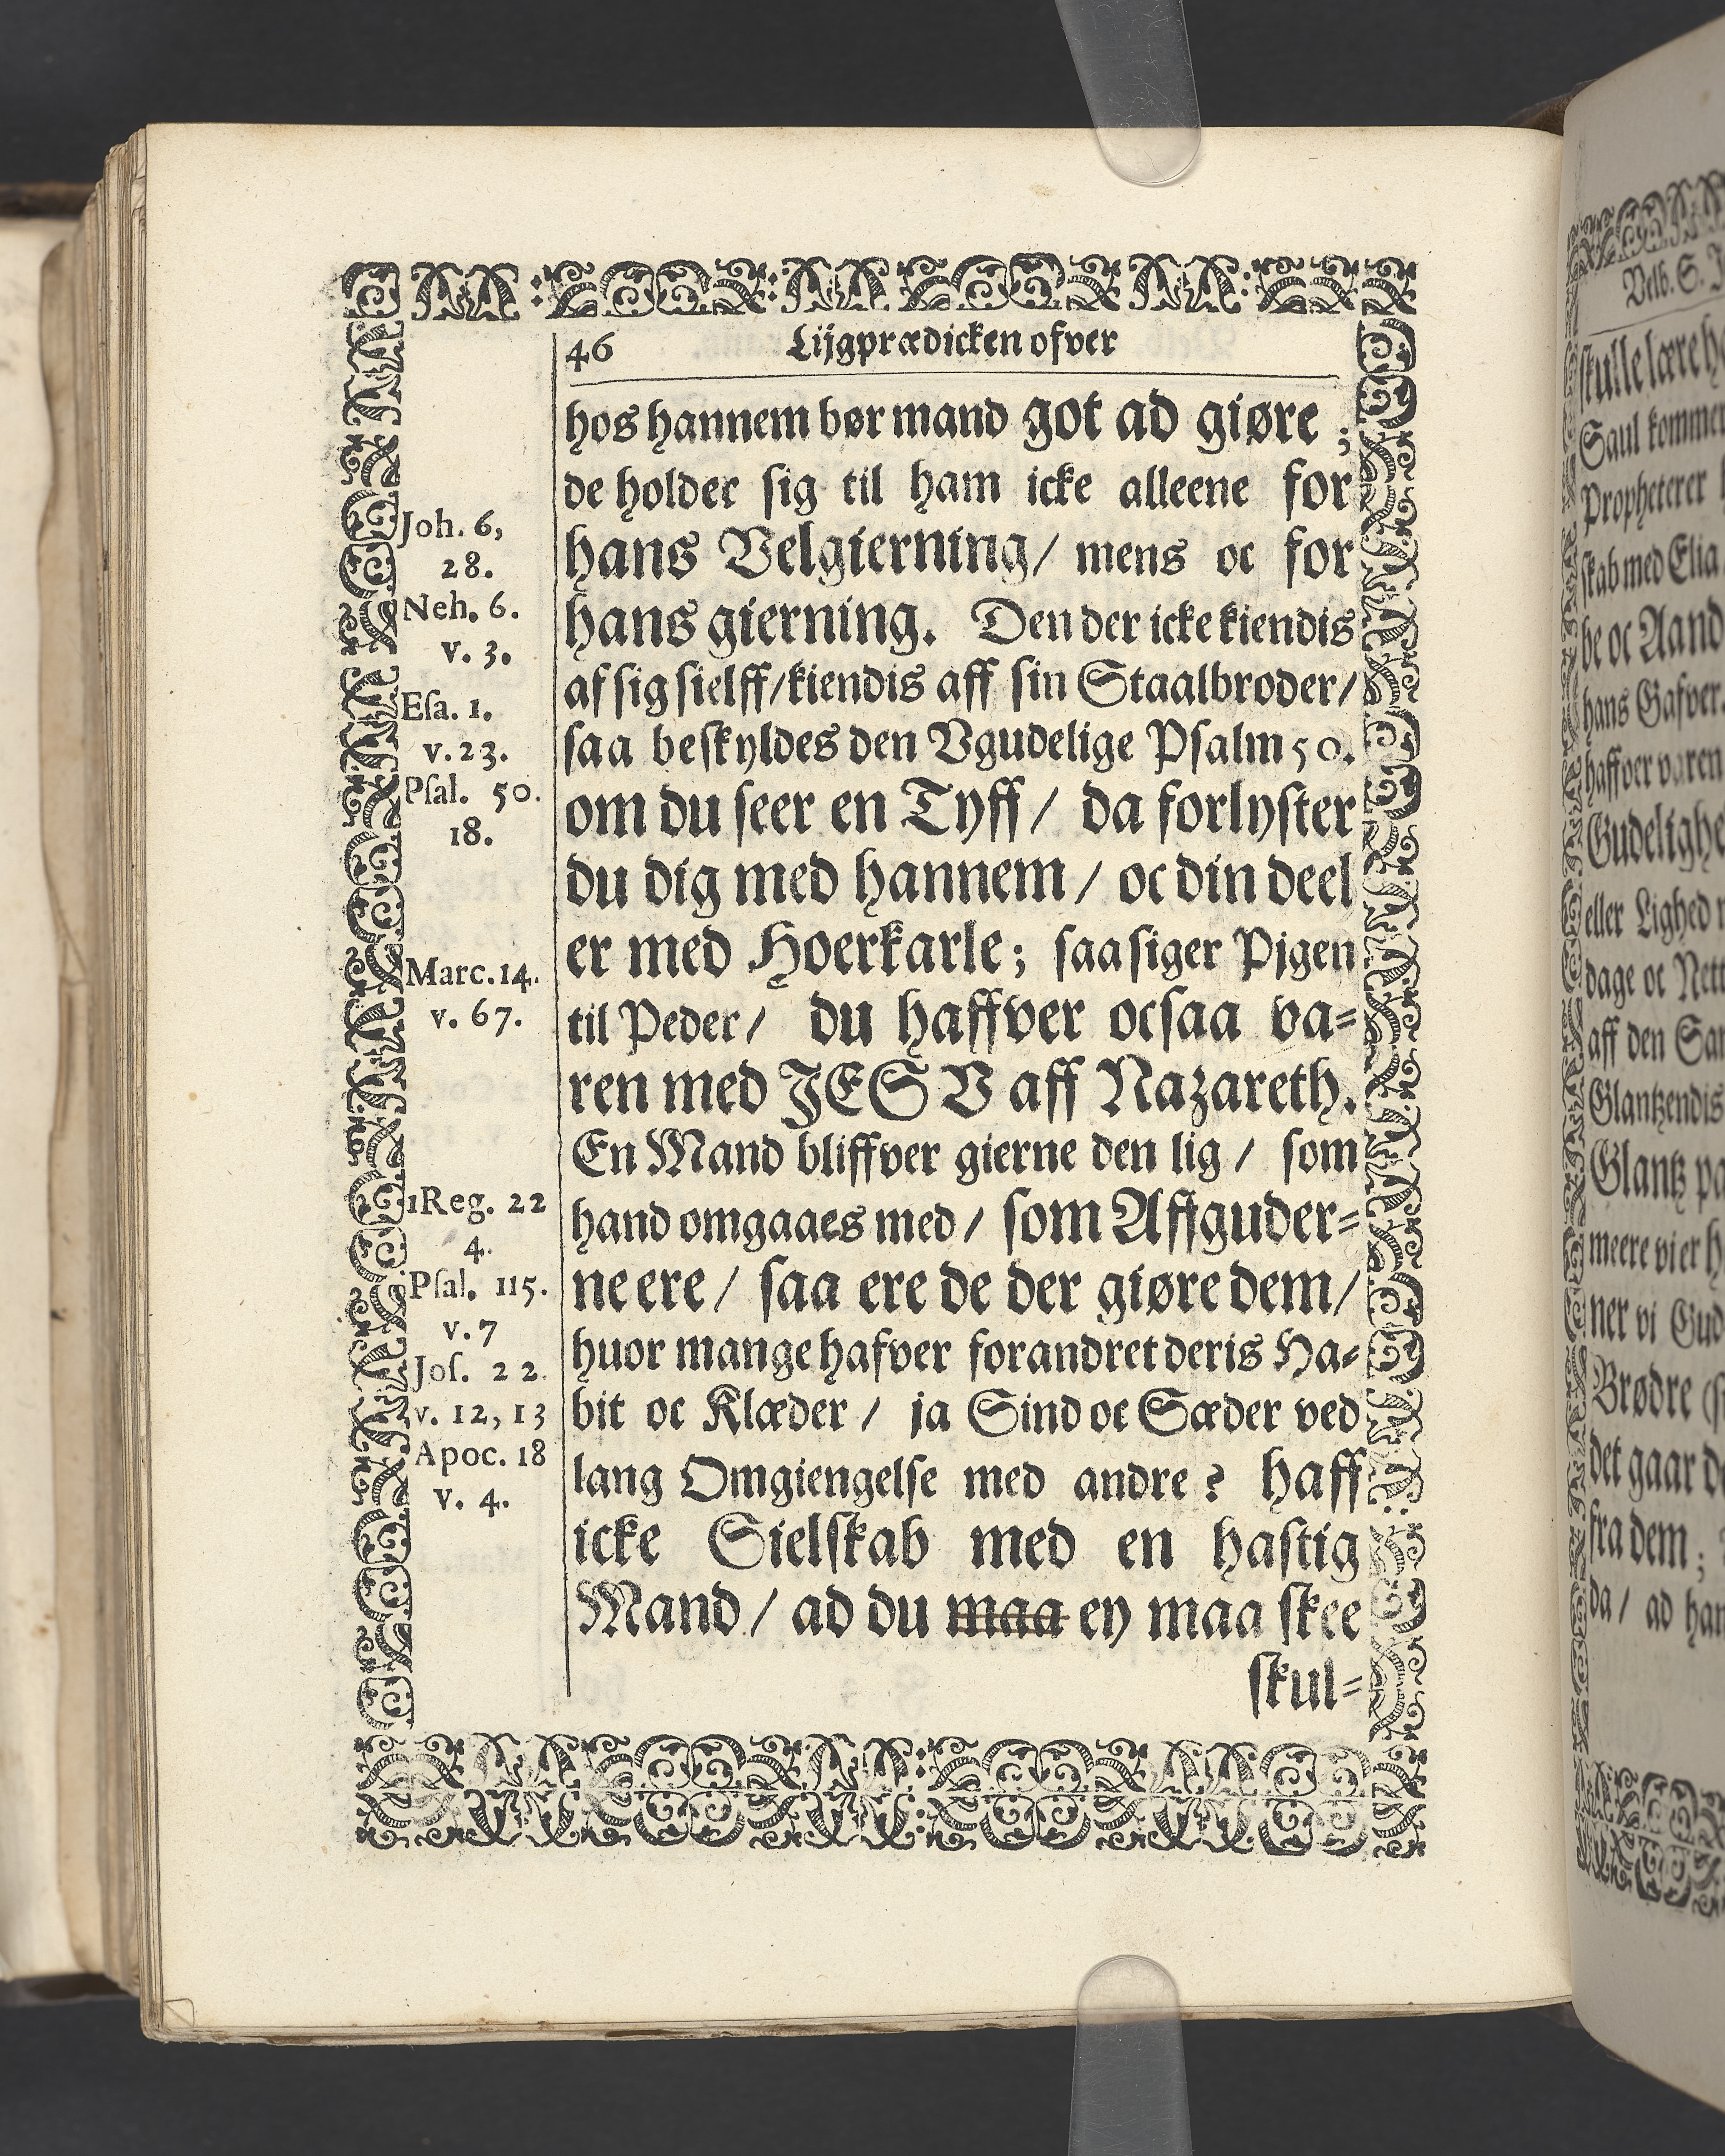 46 Lijgprædicken ofver
hos hannem bør mand got ad giøre ;
de holder sig til ham icke alleene for
hans Velgierning/ mens oc for
hans gierning. Den der icke kiendis
af sig sielff/kiendis aff sin Staalbroder/
saa beskyldes den Vgudelige Psalm 50.
om du seer en Tyff / da forlyster
du dig med hannem / oc din deel
er med Hoerkarle; saa siger Pigen
til Peder/ du haffver ocsaa va=
ren med JESV aff Nazareth.
En Mand bliffver gierne den lig / som
hand omgaaes med/ som Affguder=
ne ere / saa ere de der giøre dem/
huor mange hafver forandret deris Ha=
bit oc Klæder / ja Sind oc Sæder ved
lang Omgiengelse med andre ? Haff
icke Sielskab med en hastig
Mand / ad du maa ey maa skee
skul=
Joh. 6,
28.
Neh. 6.
v. 3.
Esa. 1.
v. 23.
Psal. 50.
18.
Marc. 14.
v. 67.
1Reg. 22
4.
Psal. 115.
v. 7
Jos. 22.
v. 12, 13
Apoc. 18
v. 4.
Velb. S.
skulle lære
Saul kommer
Propheterer
skab med Elia
be oc Aand
hans Gafver.
haffver varen
Gudelighe
eller Lighed
dage oc Nett
aff den San
Glantzendis
Glantz pa
meere vi er
ner vi Gud
Brødre
det gaar
fra dem ;
da / ad han